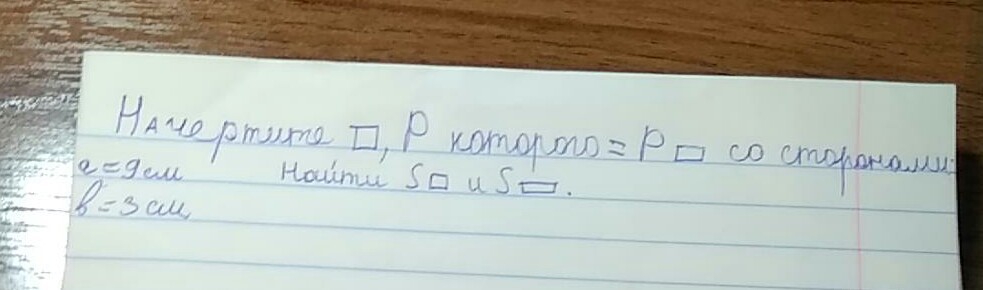 Начертите □, P которого = P ▭ со сторонами:
a = 9 см Найти S □ и S ▭.
b = 3 см,